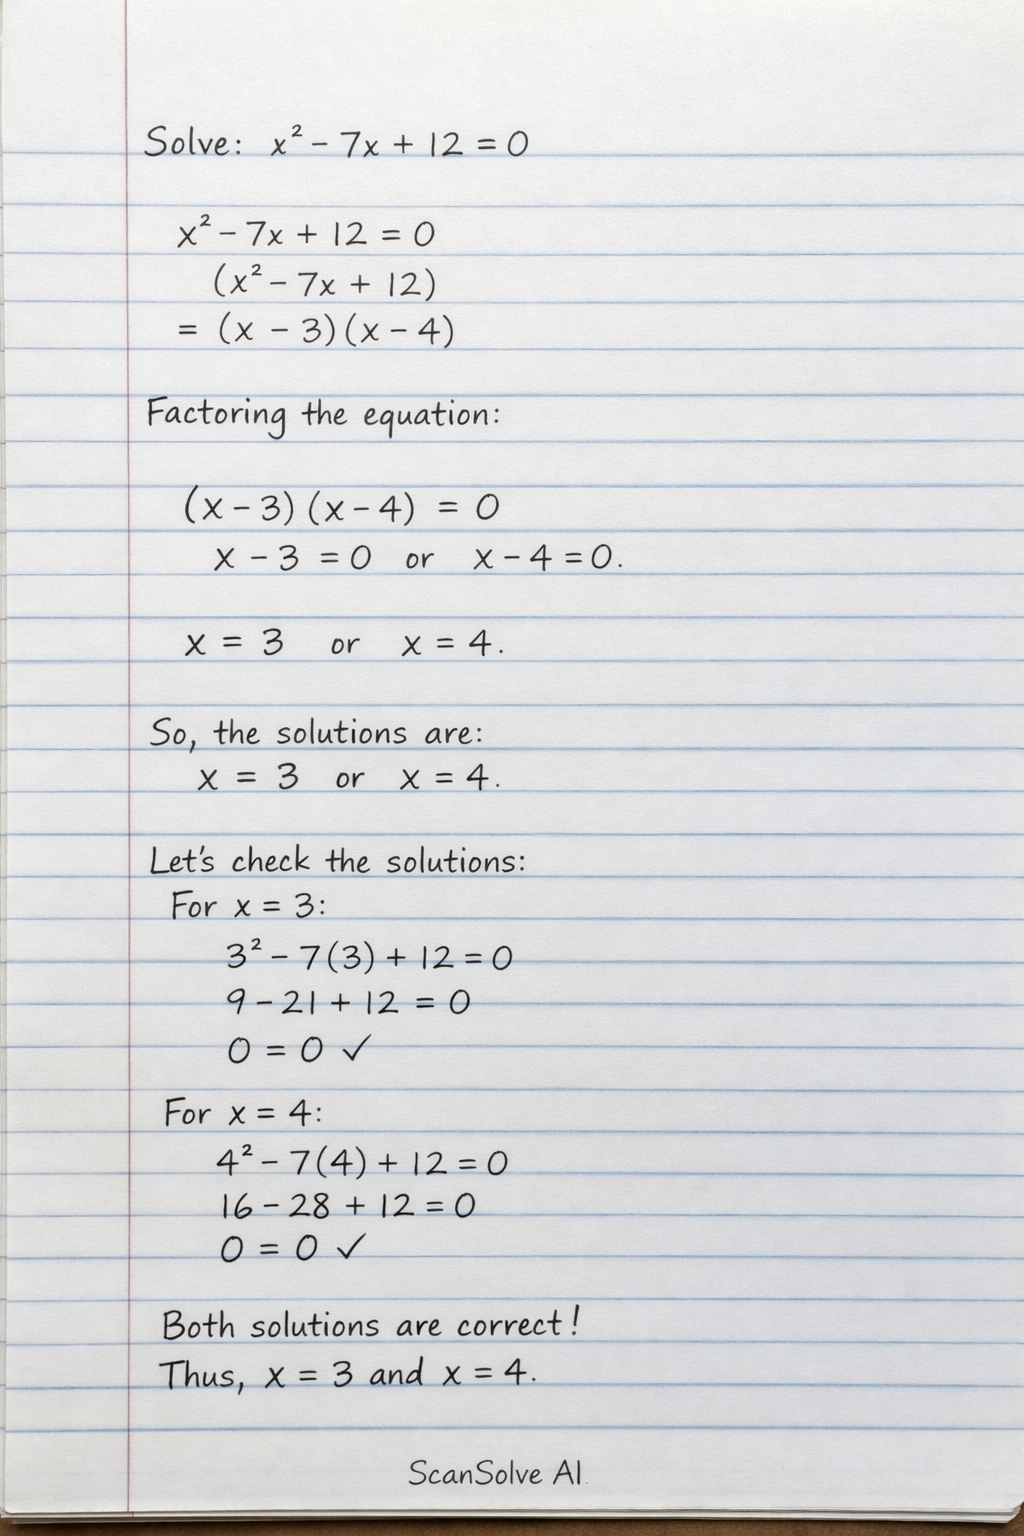 Solve: x² - 7x + 12 = 0
x² - 7x + 12 = 0
(x² - 7x + 12)
= (x - 3)(x - 4)
Factoring the equation:
(x - 3)(x - 4) = 0
x - 3 = 0 or x - 4 = 0.
x = 3 or x = 4.
So, the solutions are:
x = 3 or x = 4.
Let's check the solutions:
For x = 3:
3² - 7(3) + 12 = 0
9 - 21 + 12 = 0
0 = 0 ✓
For x = 4:
4² - 7(4) + 12 = 0
16 - 28 + 12 = 0
0 = 0 ✓
Both solutions are correct!
Thus, x = 3 and x = 4.
ScanSolve AI